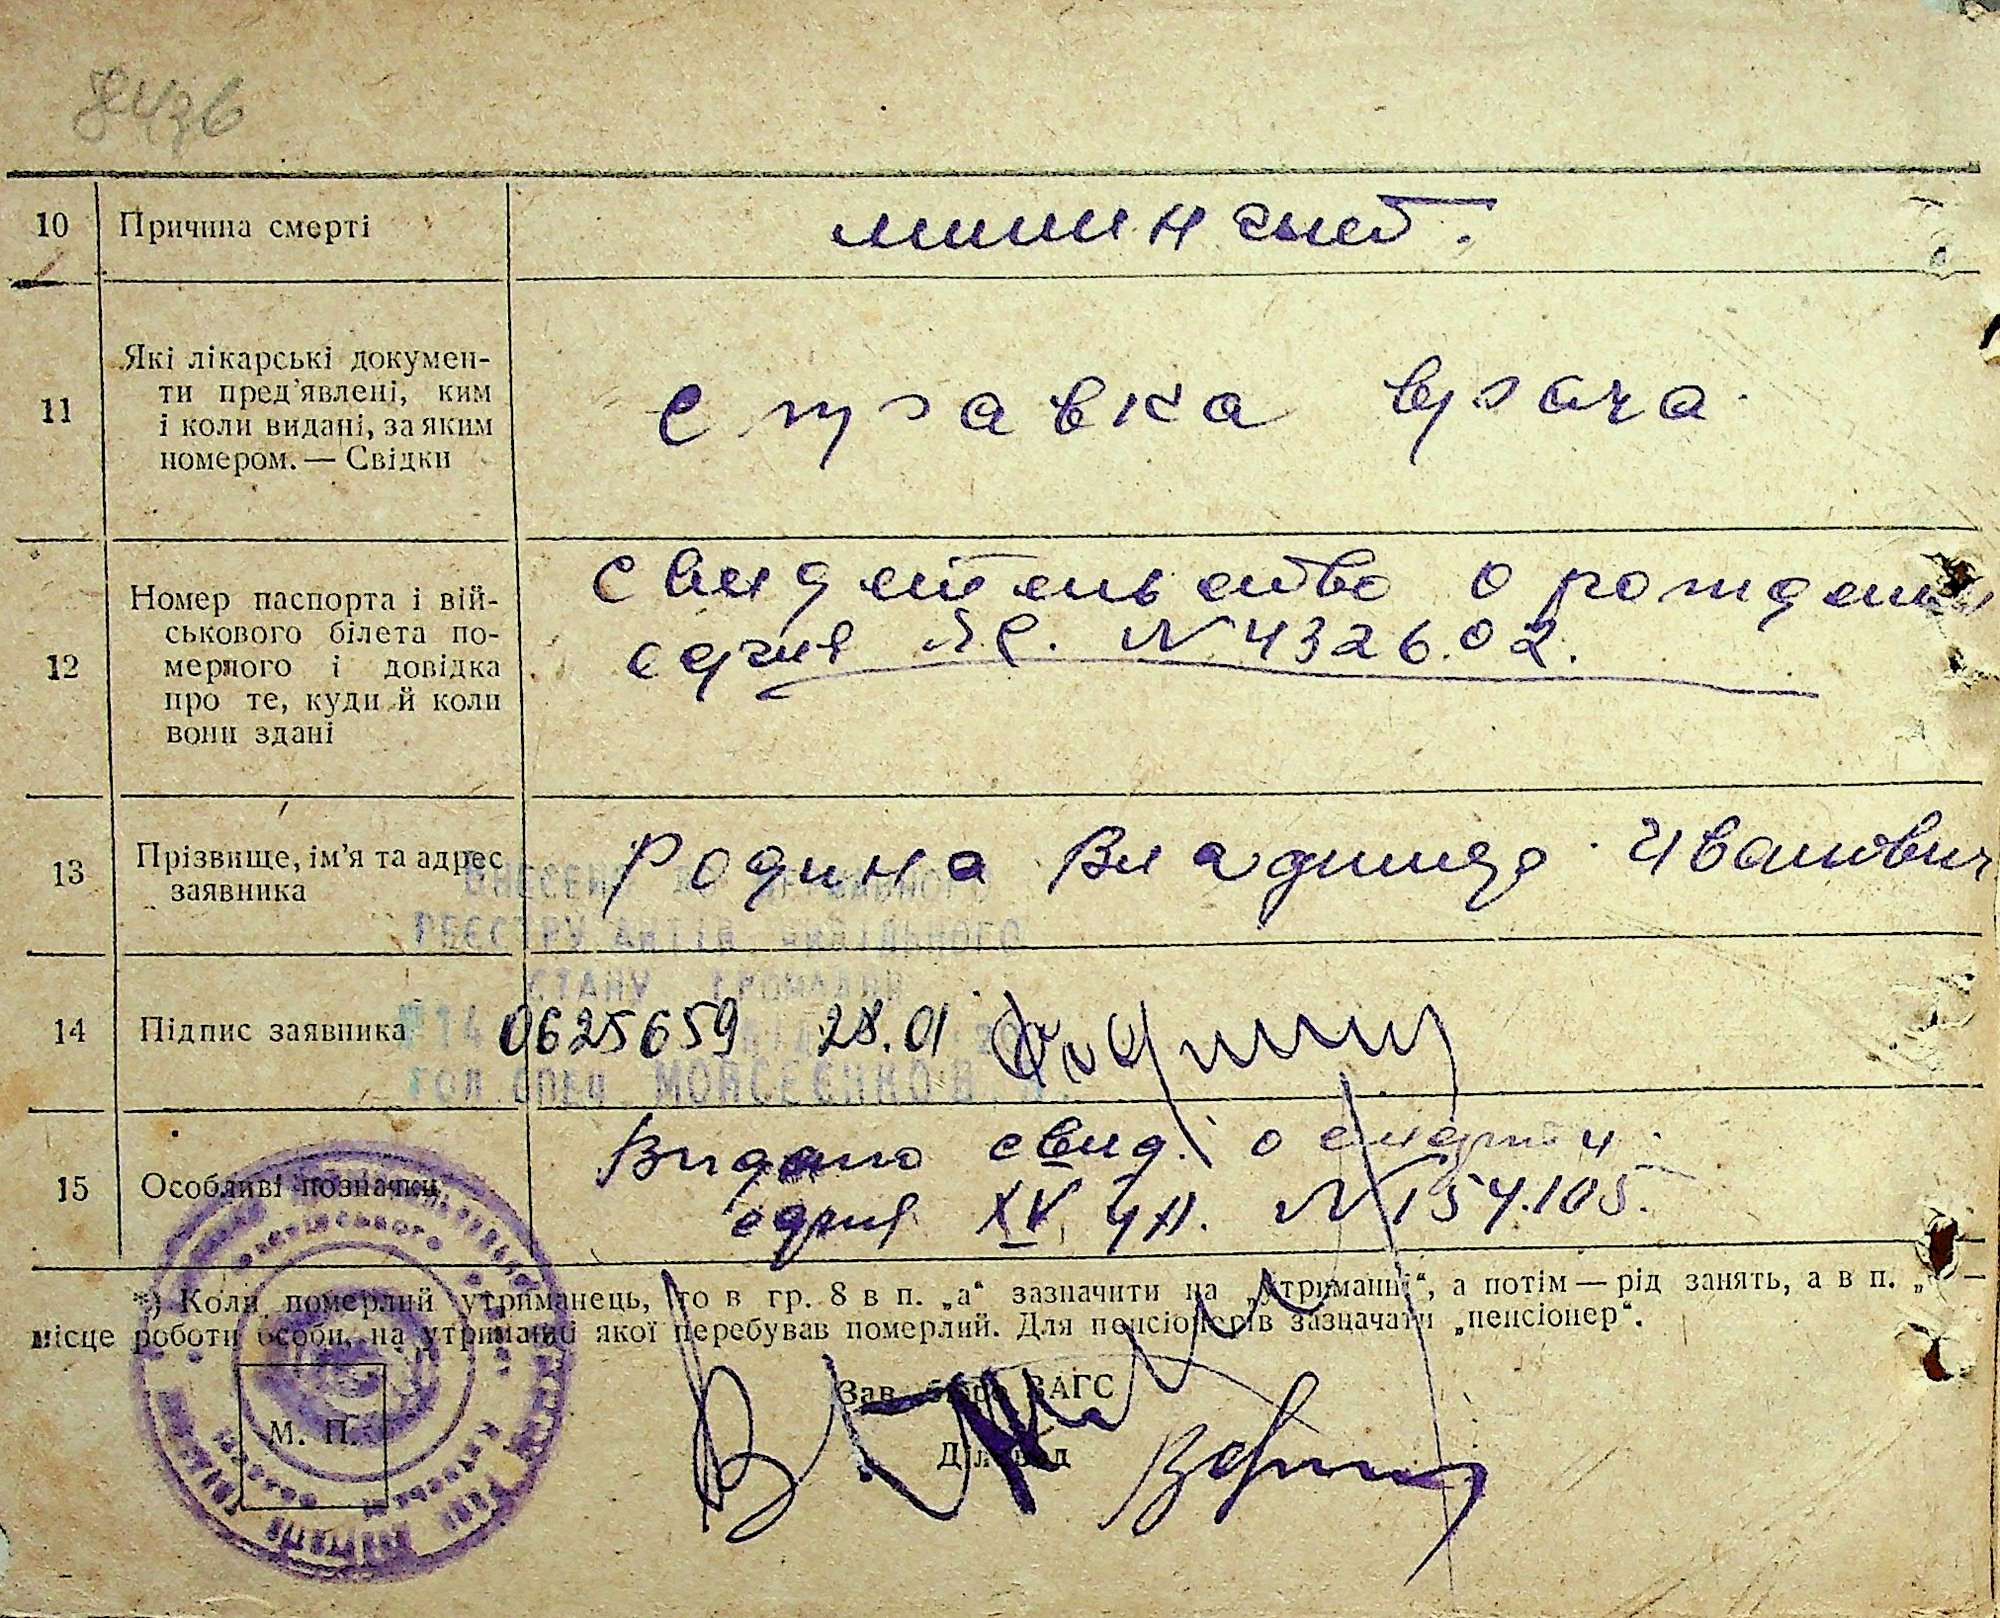 10 Причина смерті
менингит.
11 Які лікарські докумен-
ти пред'явлені, ким
і коли видані, за яким
номером. — Свідки
справка врача
12 Номер паспорта і вій-
ськового білета по-
мерлого і довідка
про те, куди й коли
вони здані
свидетельство о рождении
серия № 432602.
13 Прізвище, ім'я та адрес
заявника
Родина Владимир Иванович
ВНЕСЕНО ДО ДЕРЖАВНОГО
РЕЄСТРУ АКТІВ ЦИВІЛЬНОГО
СТАНУ ГРОМАДЯН
14 Підпис заявника
0625659 28.01
ГОЛ.СПЕЦ МОЙСЕЄНКО
15 Особливі позначки
Видано свид. о смерти
серия XV ЦА. № 154.105.
*) Коли померлий утриманець, то в гр. 8 в п. „а“ зазначити на „утриманні“, а потім — рід занять, а в п. —
місце роботи особи, на утриманні якої перебував померлий. Для пенсіонерів зазначати „пенсіонер“.
Зав. бюро ЗАГС
М. П.
Діловод